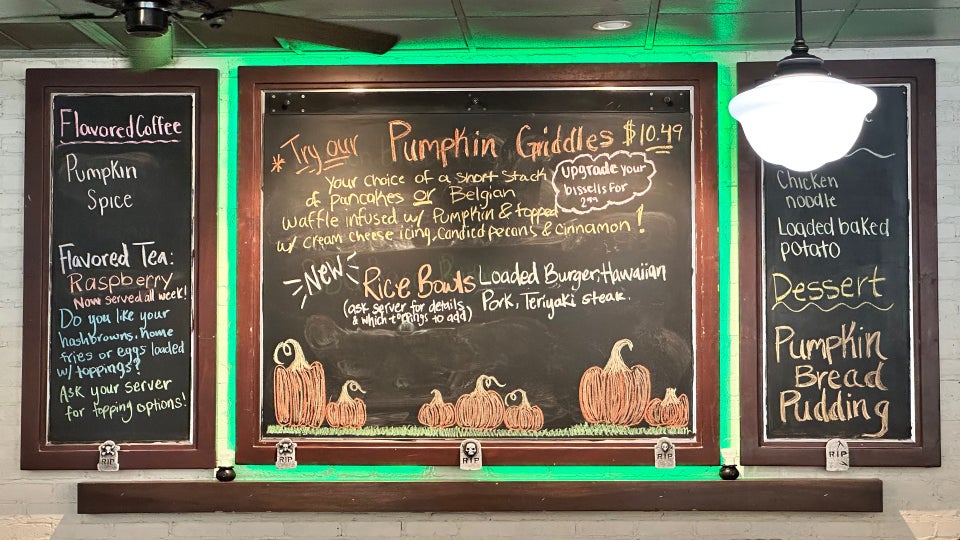 Flavored Coffee
Pumpkin
Spice
Flavored Tea:
Raspberry
Now served all week!
Do you like your
hashbrowns, home
fries or eggs loaded
w/ toppings?
Ask your server
for topping options!
*Try our Pumpkin Griddles $10.49
Your choice of a short stack
of pancakes or Belgian
waffle infused w/ Pumpkin & topped
w/ cream cheese icing, candied pecans & cinnamon!
upgrade your
bissells for
2.99
New
Rice Bowls Loaded Burger, Hawaiian
(ask server for details Pork, Teriyaki steak.
& which toppings to add)
Chicken
noodle
Loaded baked
potato
Dessert
Pumpkin
Bread
Pudding
RIP
RIP
RIP
RIP
RIP